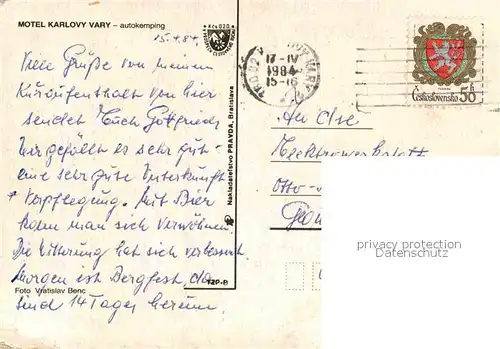 MOTEL KARLOVY VARY – autokemping
15.4.84.
Viele Grüße von meinem
Kuraufenthalt von hier
sendet Euch Gottfried
Mir gefällt es sehr gut -
eine sehr gute Unterkunft
+ Verpflegung. Mit Bier
kann man sich verwöhnen.
Die Witterung hat sich verbessert
Morgen ist Bergfest, da
sind 14 Tage herum.
Foto Vratislav Benc
Nakladatelstvo PRAVDA, Bratislava
TZP-B
KARLOVY VARY
17-IV
1984
15-16
Československo 50h
An Else
Otto-
privacy protection
Datenschutz